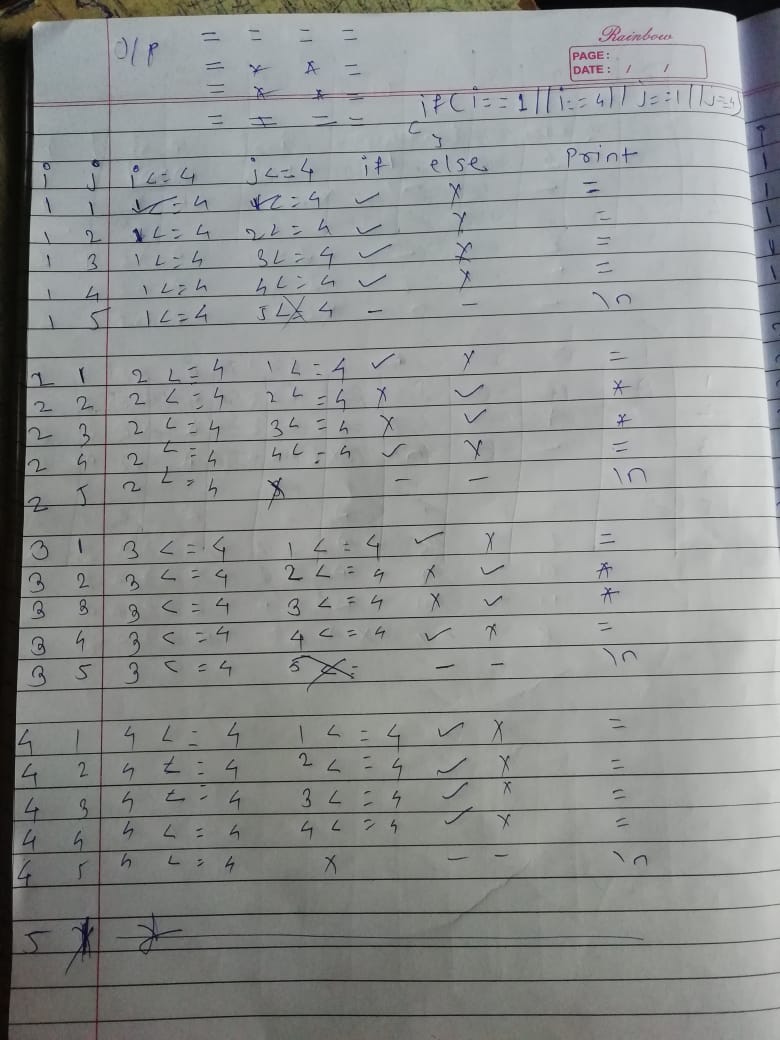 Rainbow
PAGE:
DATE: / /
O/P = = = =
= * * =
= * * =
= = = =
if(i==1||i==4||j==1||j==4)
i j i<=4 j<=4 if else print
1 1 1<=4 1<=4 ✓ x =
1 2 1<=4 2<=4 ✓ x =
1 3 1<=4 3<=4 ✓ x =
1 4 1<=4 4<=4 ✓ x =
1 5 1<=4 5<=4 - - \n
2 1 2<=4 1<=4 ✓ x =
2 2 2<=4 2<=4 x ✓ *
2 3 2<=4 3<=4 x ✓ *
2 4 2<=4 4<=4 ✓ x =
2 5 2<=4 x - - \n
3 1 3<=4 1<=4 ✓ x =
3 2 3<=4 2<=4 x ✓ *
3 3 3<=4 3<=4 x ✓ *
3 4 3<=4 4<=4 ✓ x =
3 5 3<=4 5<= - - \n
4 1 4<=4 1<=4 ✓ x =
4 2 4<=4 2<=4 ✓ x =
4 3 4<=4 3<=4 ✓ x =
4 4 4<=4 4<=4 ✓ x =
4 5 4<=4 x - - \n
5